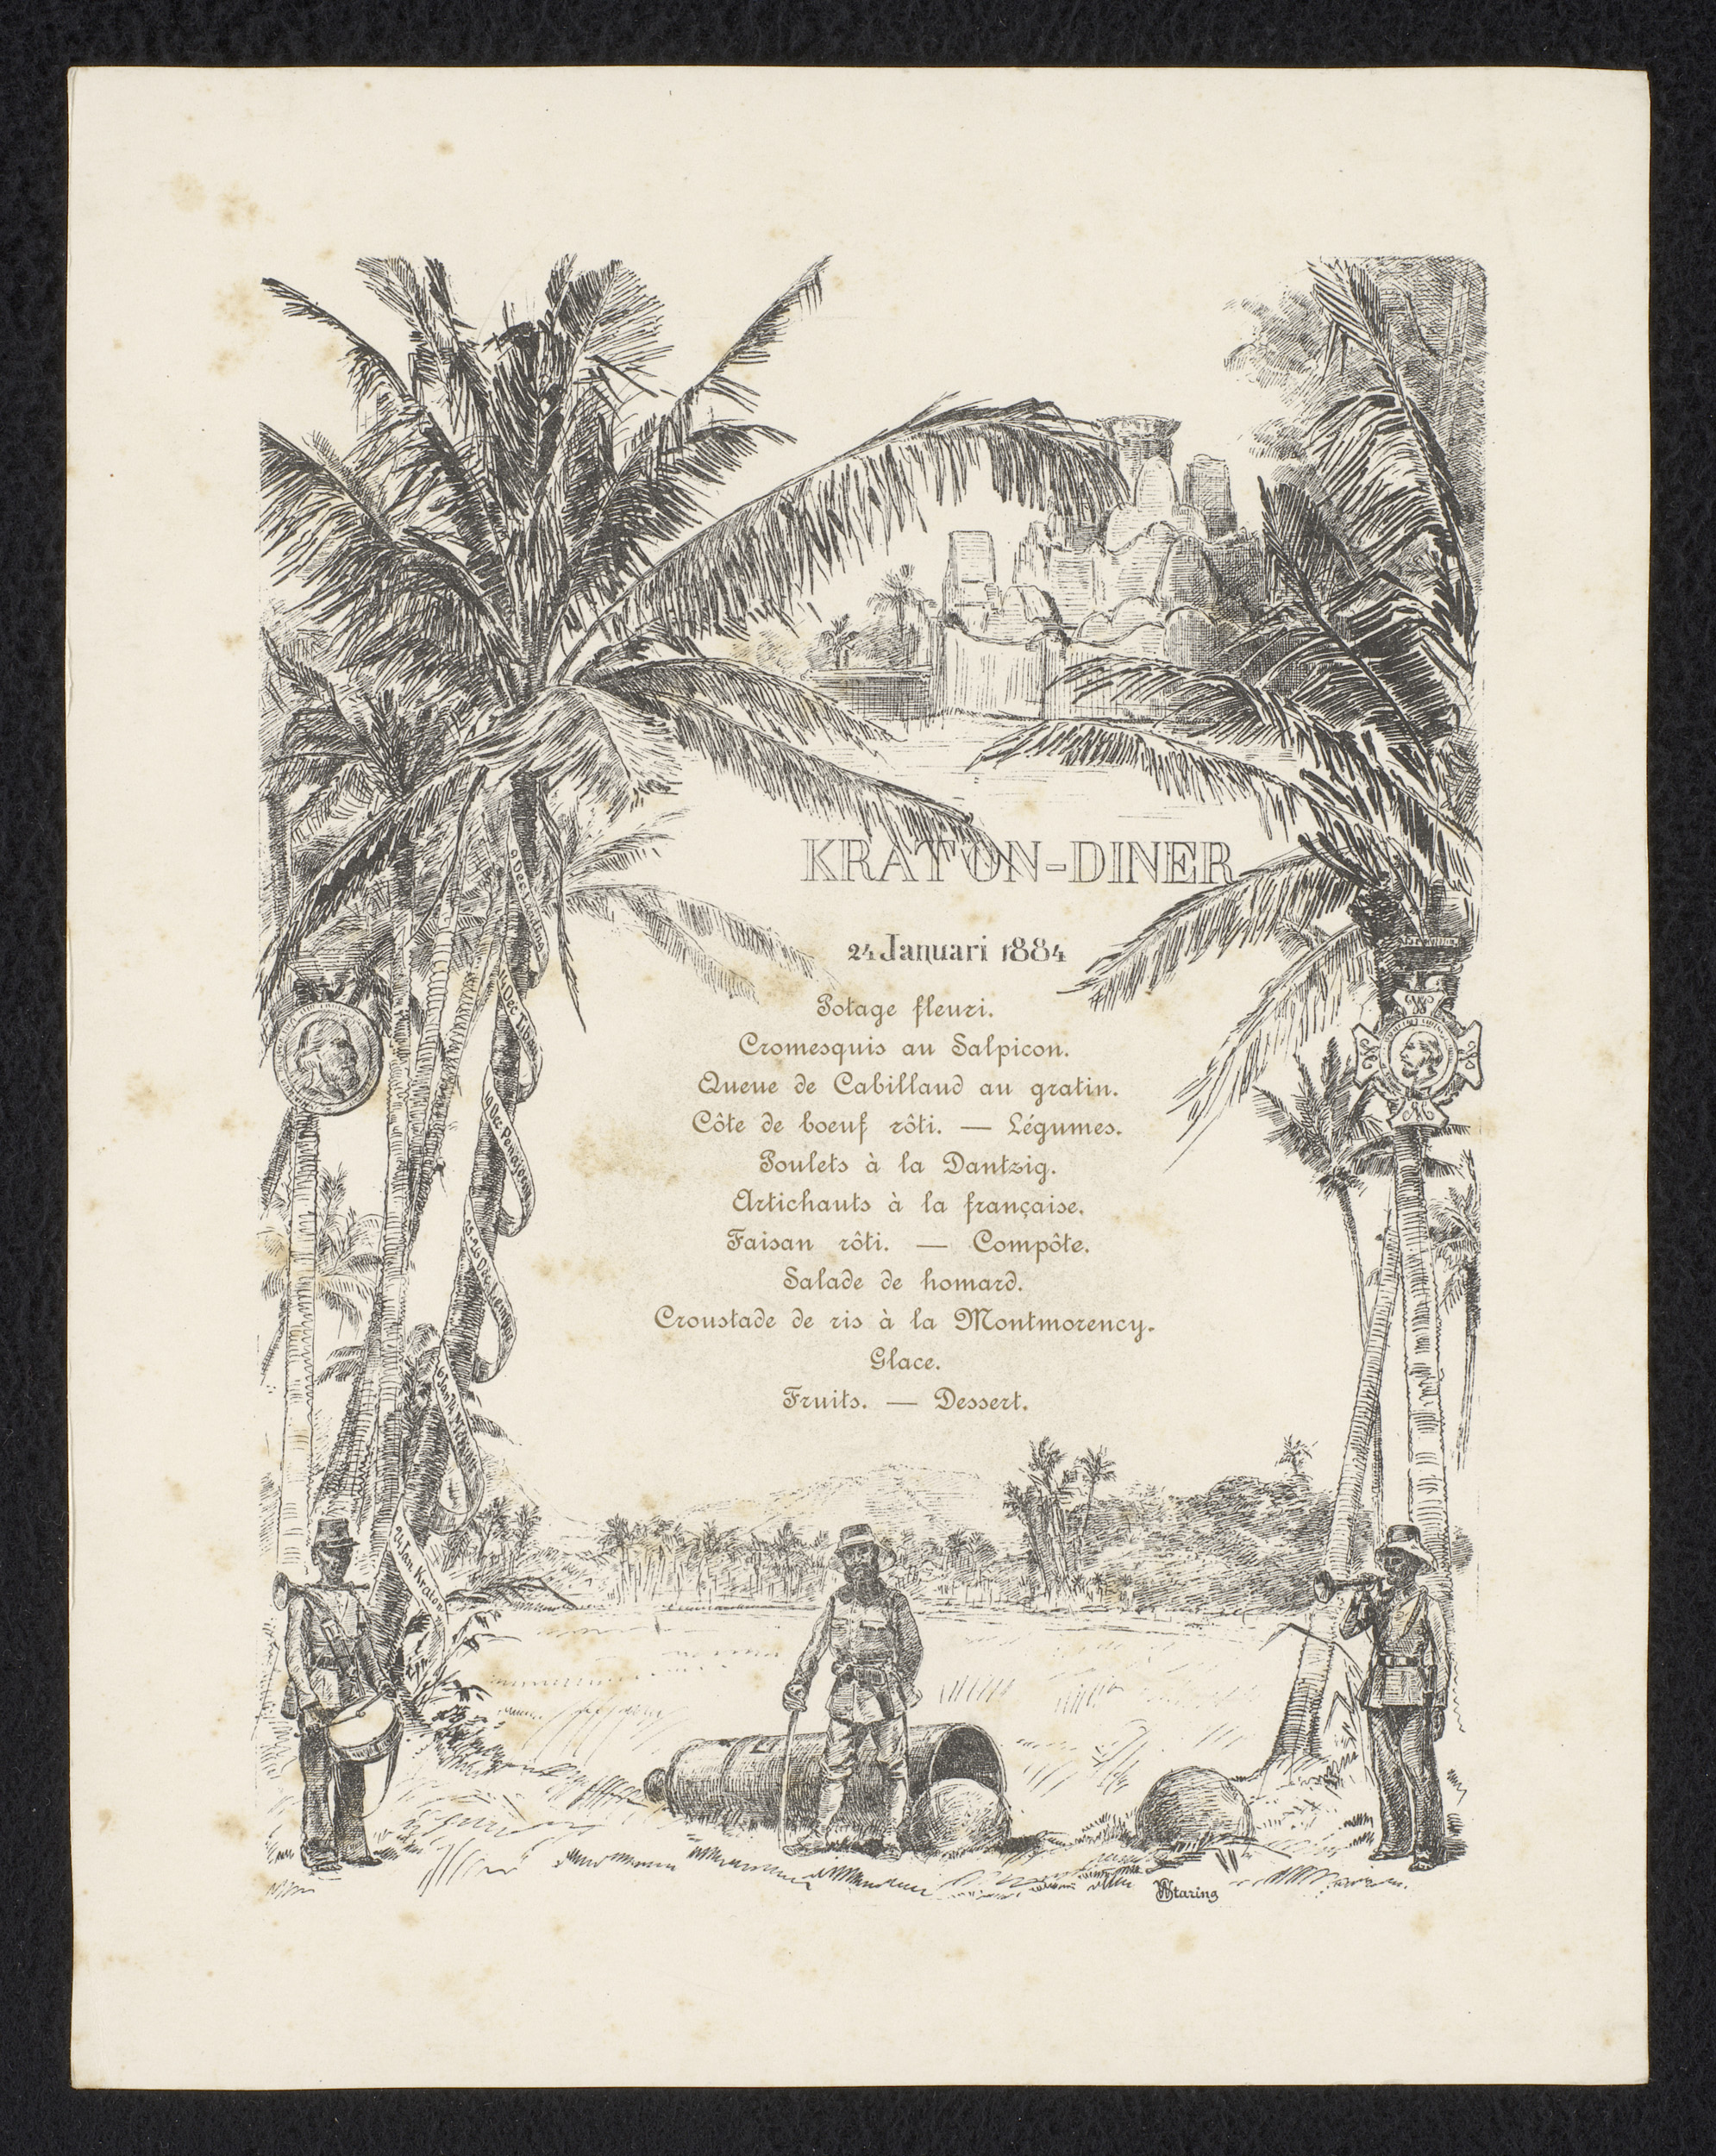 KRATON-DINER
24 Januari 1884
Potage fleuri.
Cromesquis au Salpicon.
Queue de Cabillaud au gratin.
Côte de boeuf rôti. — Légumes.
Poulets à la Dantzig.
Artichauts à la française.
Faisan rôti. — Compôte.
Salade de homard.
Croustade de ris à la Montmorency.
Glace.
Fruits. — Dessert.
25.26 Dec. Lemboe
6 Jan.
24 Jan. Kraton
WStaring